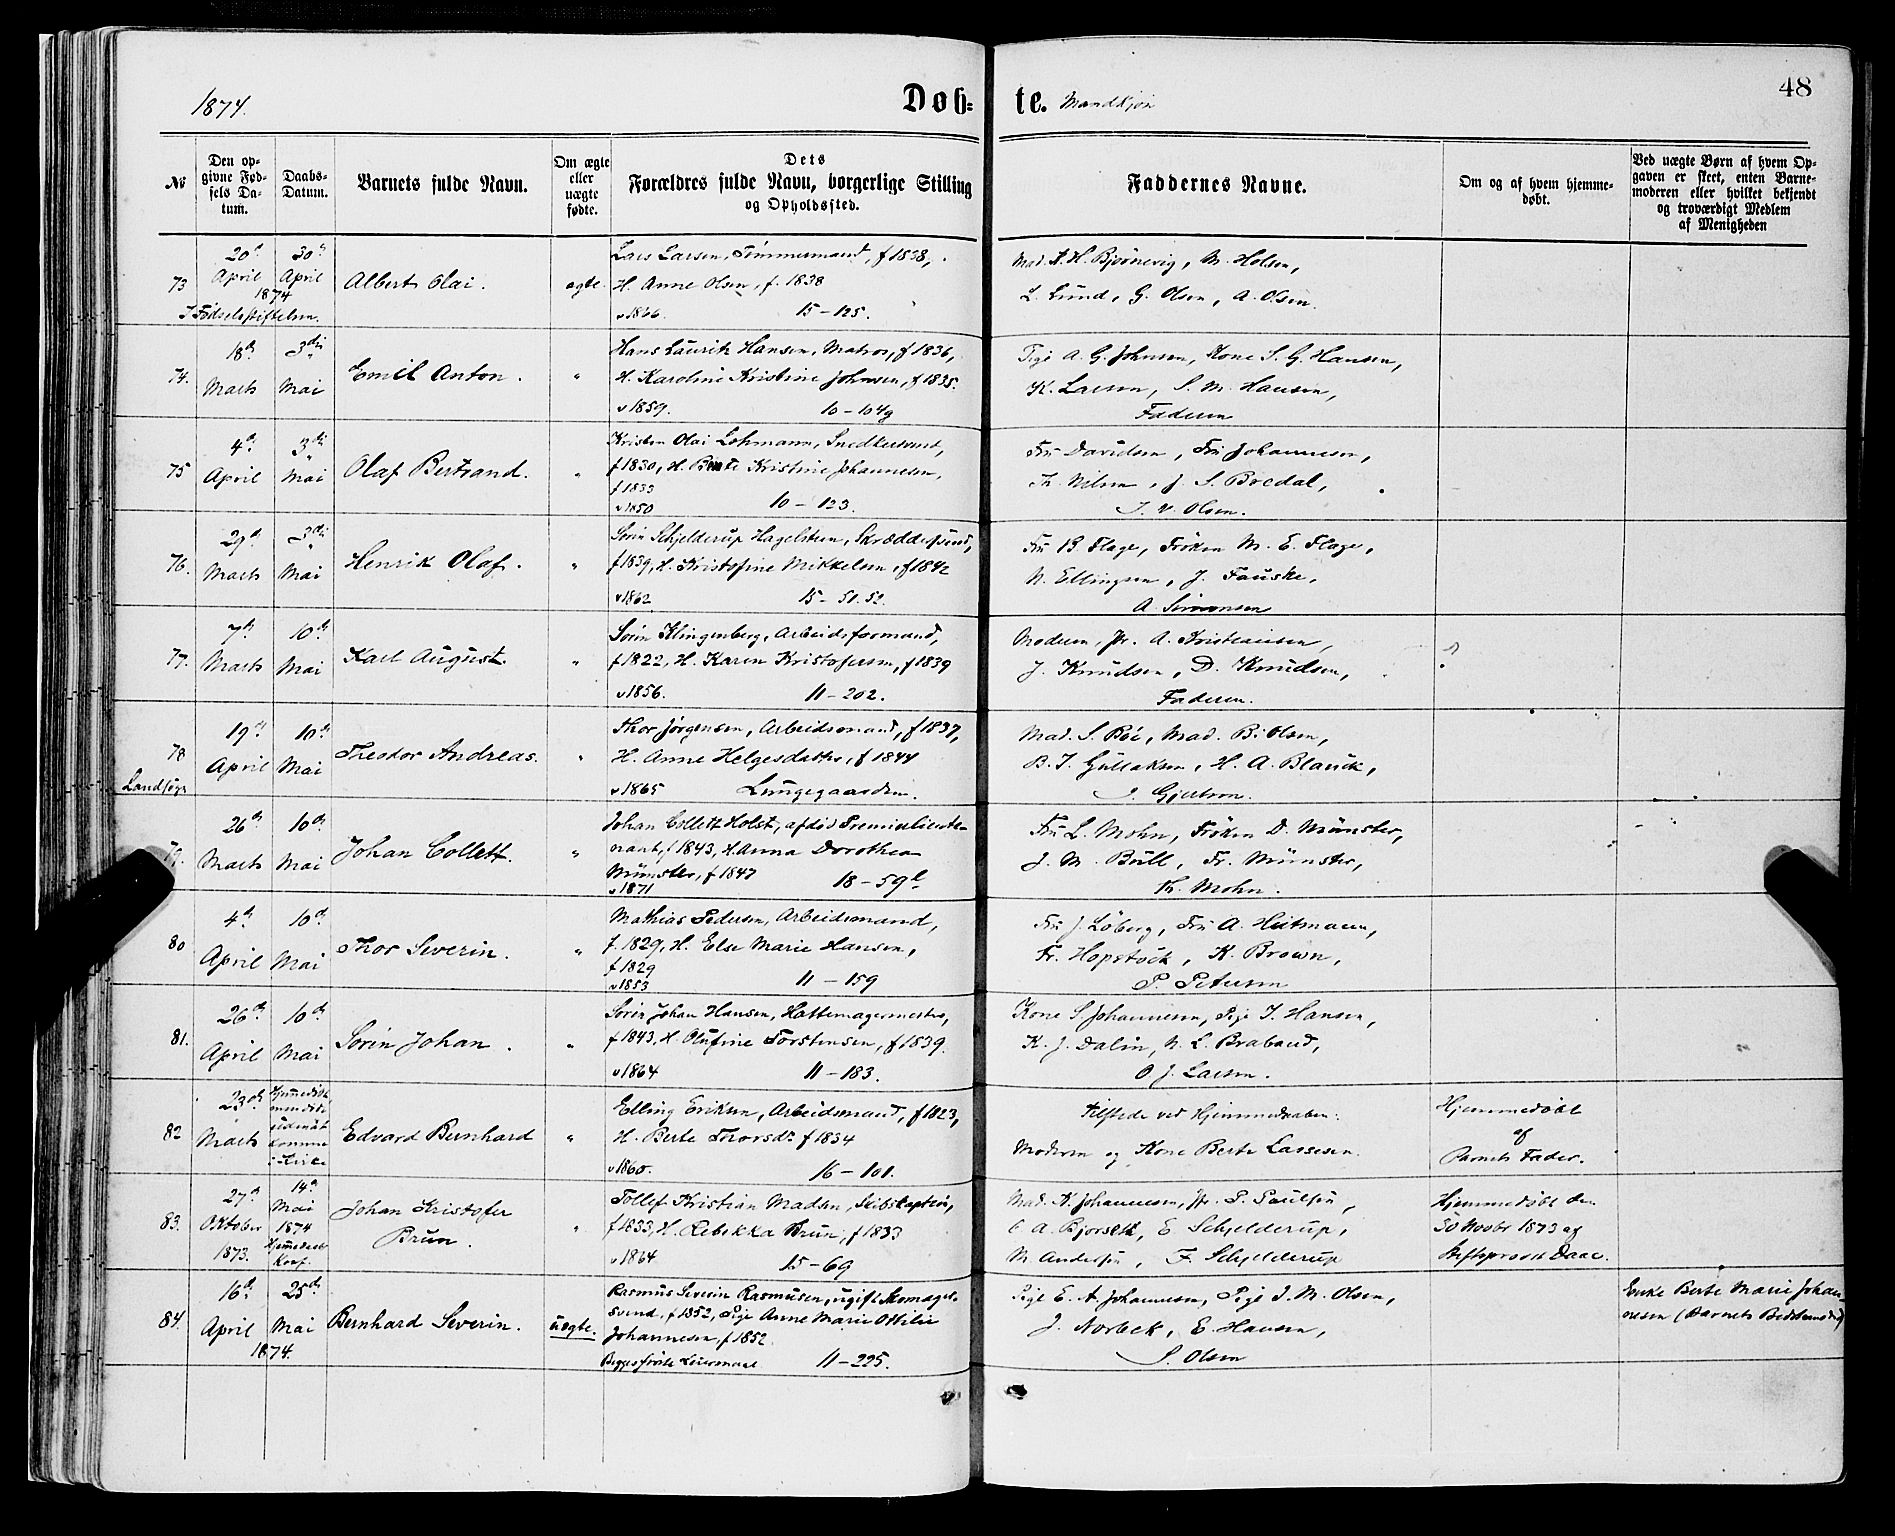 1874.
Døb= te. Mandkjøn
48
No
Den op-
givne Fød-
sels Da-
tum.
Daabs-
Datum.
Barnets fulde Navn.
Om ægte
eller
uægte
fødte.
Dets
Forældres fulde Navn, borgerlige Stilling
og Opholdssted.
Faddernes Navne.
Om og af hvem hjemme-
døbt.
Ved uægte Børn af hvem Op-
gaven er skeet, enten Barne-
moderen eller hvilket bekjendt
og troværdigt Medlem
af Menigheden
73
20de April
30te April
1874
I Fødselsstiftelsen.
Albert Olai.
ægte.
Lars Larsen, Tømmermand, f 1838,
H. Anne Olsen, f. 1838
v 1866. 15 - 125.
Mad. A. H. Bjørnevig, M. Holsen,
L. Lund, G. Olsen, A. Olsen
74.
18de Marts
3die Mai
Emil Anton.
"
Hans Laurik Hansen, Matros, f 1836,
H. Karoline Kristine Johnsen, f 1835.
v 1859. 10 - 104g
Pige A. G. Johnsen, Kone S. G. Hansen,
K. Larsen, S. M. Hansen,
Faderen
75
4de April
3die Mai
Olaf Bertrand.
"
Kristen Olai Lohmann, Snedkersvend,
f 1830, H. Bente Kristine Johannesen,
f 1833
v 1850 10 - 123.
Fru Davidsen, Fru Johannesen,
Th. Nilsen, J. S. Bredal,
J. V. Olsen.
76.
29de Marts
3die Mai
Henrik Olaf.
"
Sørin Schjelderup Hagelsteen, Skræddersvend,
f 1839, H. Kristofine Mikkelsen, f 1842
v 1862 15 - 51.52.
Fru B. Flage, Frøken M. E. Flage,
N. Ellingsen, J. Fauske,
A. Simonsen
77.
7de Marts
10de Mai
Karl August.
"
Sørin Klingenberg, Arbeidsformand,
f 1822, H. Karen Kristofersen, f 1839
v 1856. 11 - 202.
Moderen, Jfr. A. Kristiansen,
J. Knudsen, D. Knudsen,
Faderen.
78
Landsogn
19de April
10de Mai
Theodor Andreas.
"
Thor Jørgensen, Arbeidsmand, f 1837,
H. Anne Helgesdatter, f 1844
v 1865 Lungegaarden.
Mad. S. Røe, Mad. B. Olsen,
B. J. Gullaksen, H. A. Blauck,
J. Gjertsen.
79.
26de Marts
10de Mai
Johan Collett.
"
Johan Collett Holst, afdød Premierlieute-
nant, f 1843, H. Anna Dorothea
Münster, f 1847
v 1871 18 - 59b
Fru L. Mohn, Frøken D. Münster,
J. M. Bull, Fr. Münster,
Th. Mohn.
80
4de April
10de Mai
Thor Severin.
"
Mathias Pedersen, Arbeidsmand,
f. 1829, H. Else Marie Hansen,
f 1829
v 1853 11 - 159
Fru J. Løberg, Fru A. Heitmann,
Fr. Hopstock, K. Brown,
P. Petersen
81.
26de April
10de Mai
Sørin Johan.
"
Sørin Johan Hansen, Hattemagermester,
f 1843, H. Olufine Torstensen, f 1839.
v 1864 11 - 183.
Kone S. Johannesen, Pige I. Hansen,
K. J. Dalin, N. L. Braband,
O. J. Larsen.
82
23de Marts
Hjemmedøbt
men døde
uden at
komme
i Kirke
Edvard Bernhard
"
Elling Eriksen, Arbeidsmand, f 1823,
H. Berte Thorsdr f 1834
v 1860. 16 - 101.
Tilstede ved Hjemmedaaben:
Moderen og Kone Berte Lassesen.
Hjemmedøbt
af
Barnets Fader.
83.
27de Oktober 1873.
14de Mai 1874
Johan Kristofer
Brun.
"
Tollef Kristian Madsen, Skibskaptein,
f 1833, H. Rebekka Brun, f 1833
v 1864 15 - 69
Mad. K. Johannesen, Jfr. S. Paulsen,
C A. Bjorseth, E Schjelderup,
M Andersen, F. Schjelderup
Hjemmedøbt den
30 Novbr 1873 af
Stiftsprovst Daae.
84.
16de April
25de Mai
1874.
Bernhard Severin.
uægte.
Rasmus Severin Rasmusen, ugift Skomager-
svend, f 1852, Pige Anne Marie Ottilie
Johannesen, f 1852.
Begges første Leiermaal 11 - 295.
Pige E. A. Johannesen, Pige I. M. Olsen,
J. Norbek, E. Hansen,
S. Olsen
Enke Berte Marie Johan-
nesen (Barnets Bedstemoder)